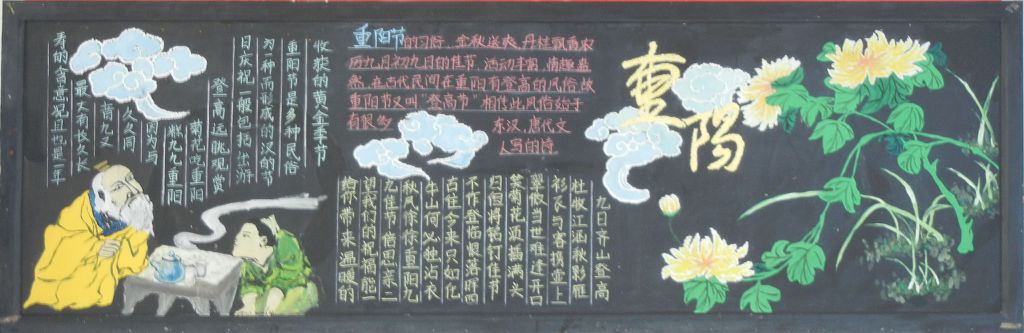 重阳节的习俗 金秋送爽,丹桂飘香农
历九月初九日的佳节,活动丰富,情趣盎
然,在古代民间在重阳有登高的风俗故
重阳节又叫"登高节" 相传此风俗始于
有很多 东汉,唐代文
人写的诗
重陽
收获的黄金季节
重阳节是多种民俗
为一种而形成的汉的节
日庆祝一般包括出游
登高远眺观赏
菊花吃重阳
糕九九重阳
因为与
久久同
音九又
最大有长久长
寿的含意况且也是一年
九日齐山登高
杜牧江涵秋影雁
飞与客携壶上
翠微当世难逢开口
笑菊花须插满头
归但将酩酊佳节
不作登临恨落晖四
古往今来只如化
牛山何必沾衣
秋风徐徐重阳九
九佳节倍思亲二
望我们的祝福能一
给你带来温暖的